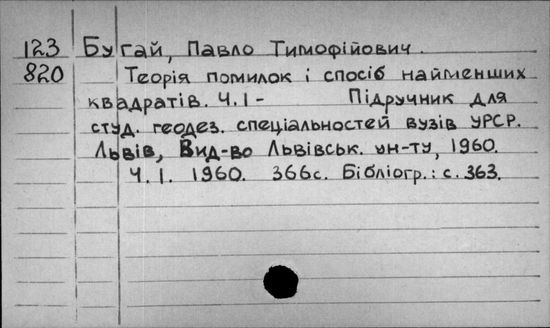 123 Бугай, Павло Тимофійович.
820 Теорія помилок і спосіб найменших
квадратів. Ч.І- Підручник для
студ. геодез. спеціальностей вузів УРСР.
Львів, Вид-во Львівськ. ун-ту, 1960.
Ч.І. 1960. 366с. Бібліогр.: с. 363.